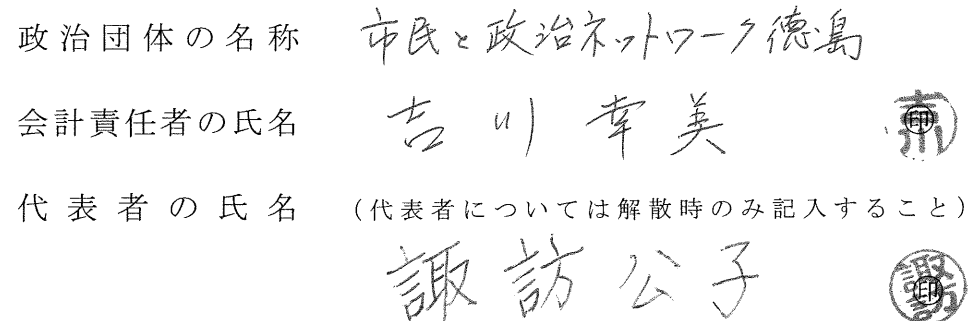 政治団体の名称 市民と政治ネットワーク徳島
会計責任者の氏名 吉川幸美 吉川 印
代表者の氏名 (代表者については解散時のみ記入すること)
諏訪公子 諏訪 印